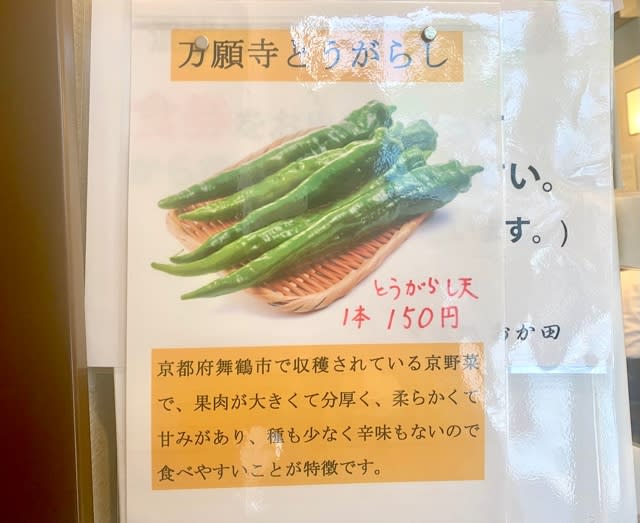 万願寺とうがらし
とうがらし天
1本 150円
京都府舞鶴市で収穫されている京野菜
で、果肉が大きくて分厚く、柔らかくて
甘みがあり、種も少なく辛味もないので
食べやすいことが特徴です。
い。
す。)
か田